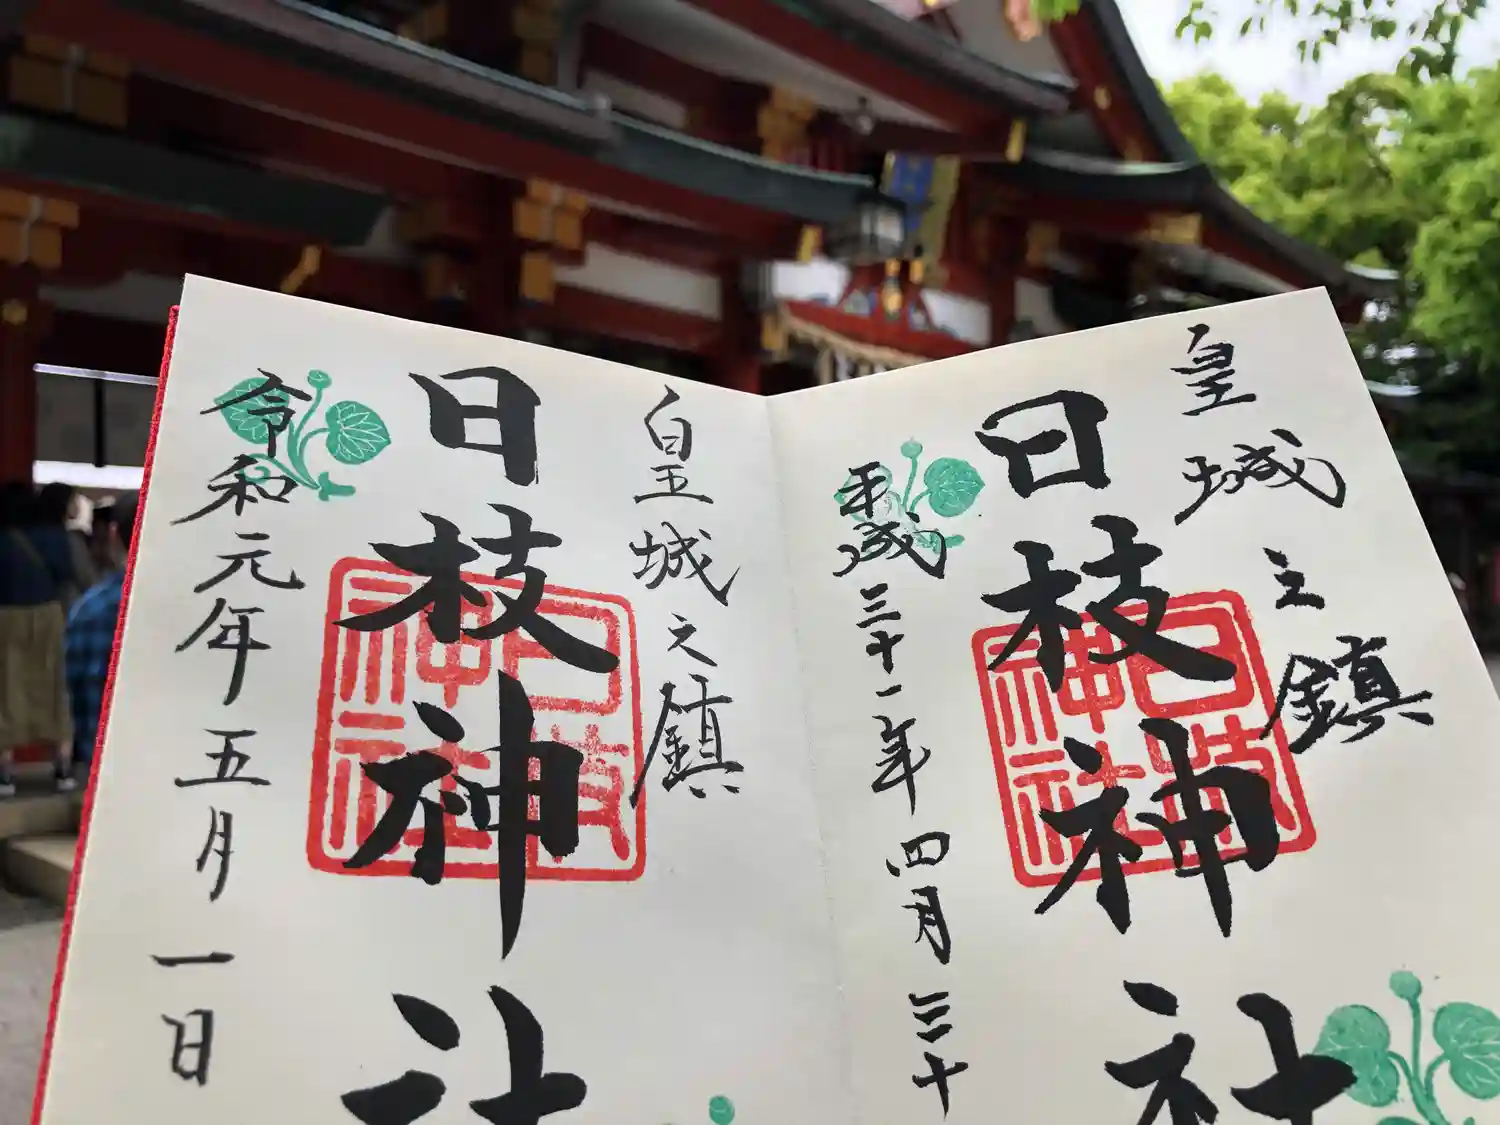 皇城之鎮
日枝神社
日枝神社
平成三十一年四月三十
皇城之鎮
日枝神社
日枝神社
令和元年五月一日